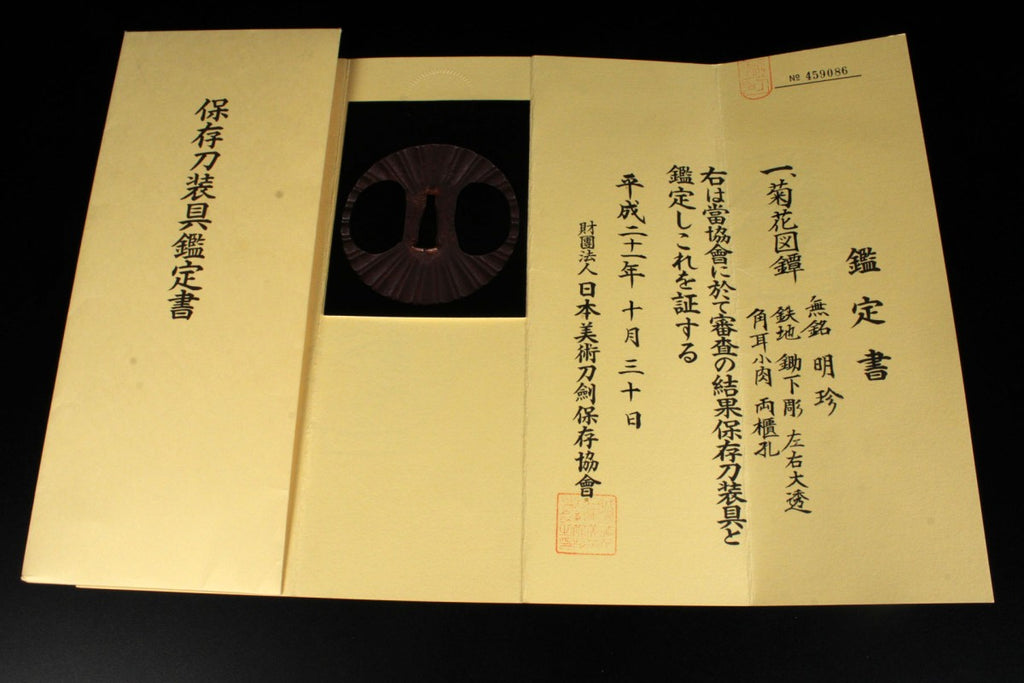 保存刀装具鑑定書
№ 459086
鑑定書
一、菊花図鐔
無銘 明珍
鉄地 鋤下彫 左右大透
角耳小肉 両櫃孔
右は當協會に於て審査の結果保存刀装具と
鑑定しこれを証する
平成二十一年 十月 三十日
財團法人 日本美術刀劍保存協會